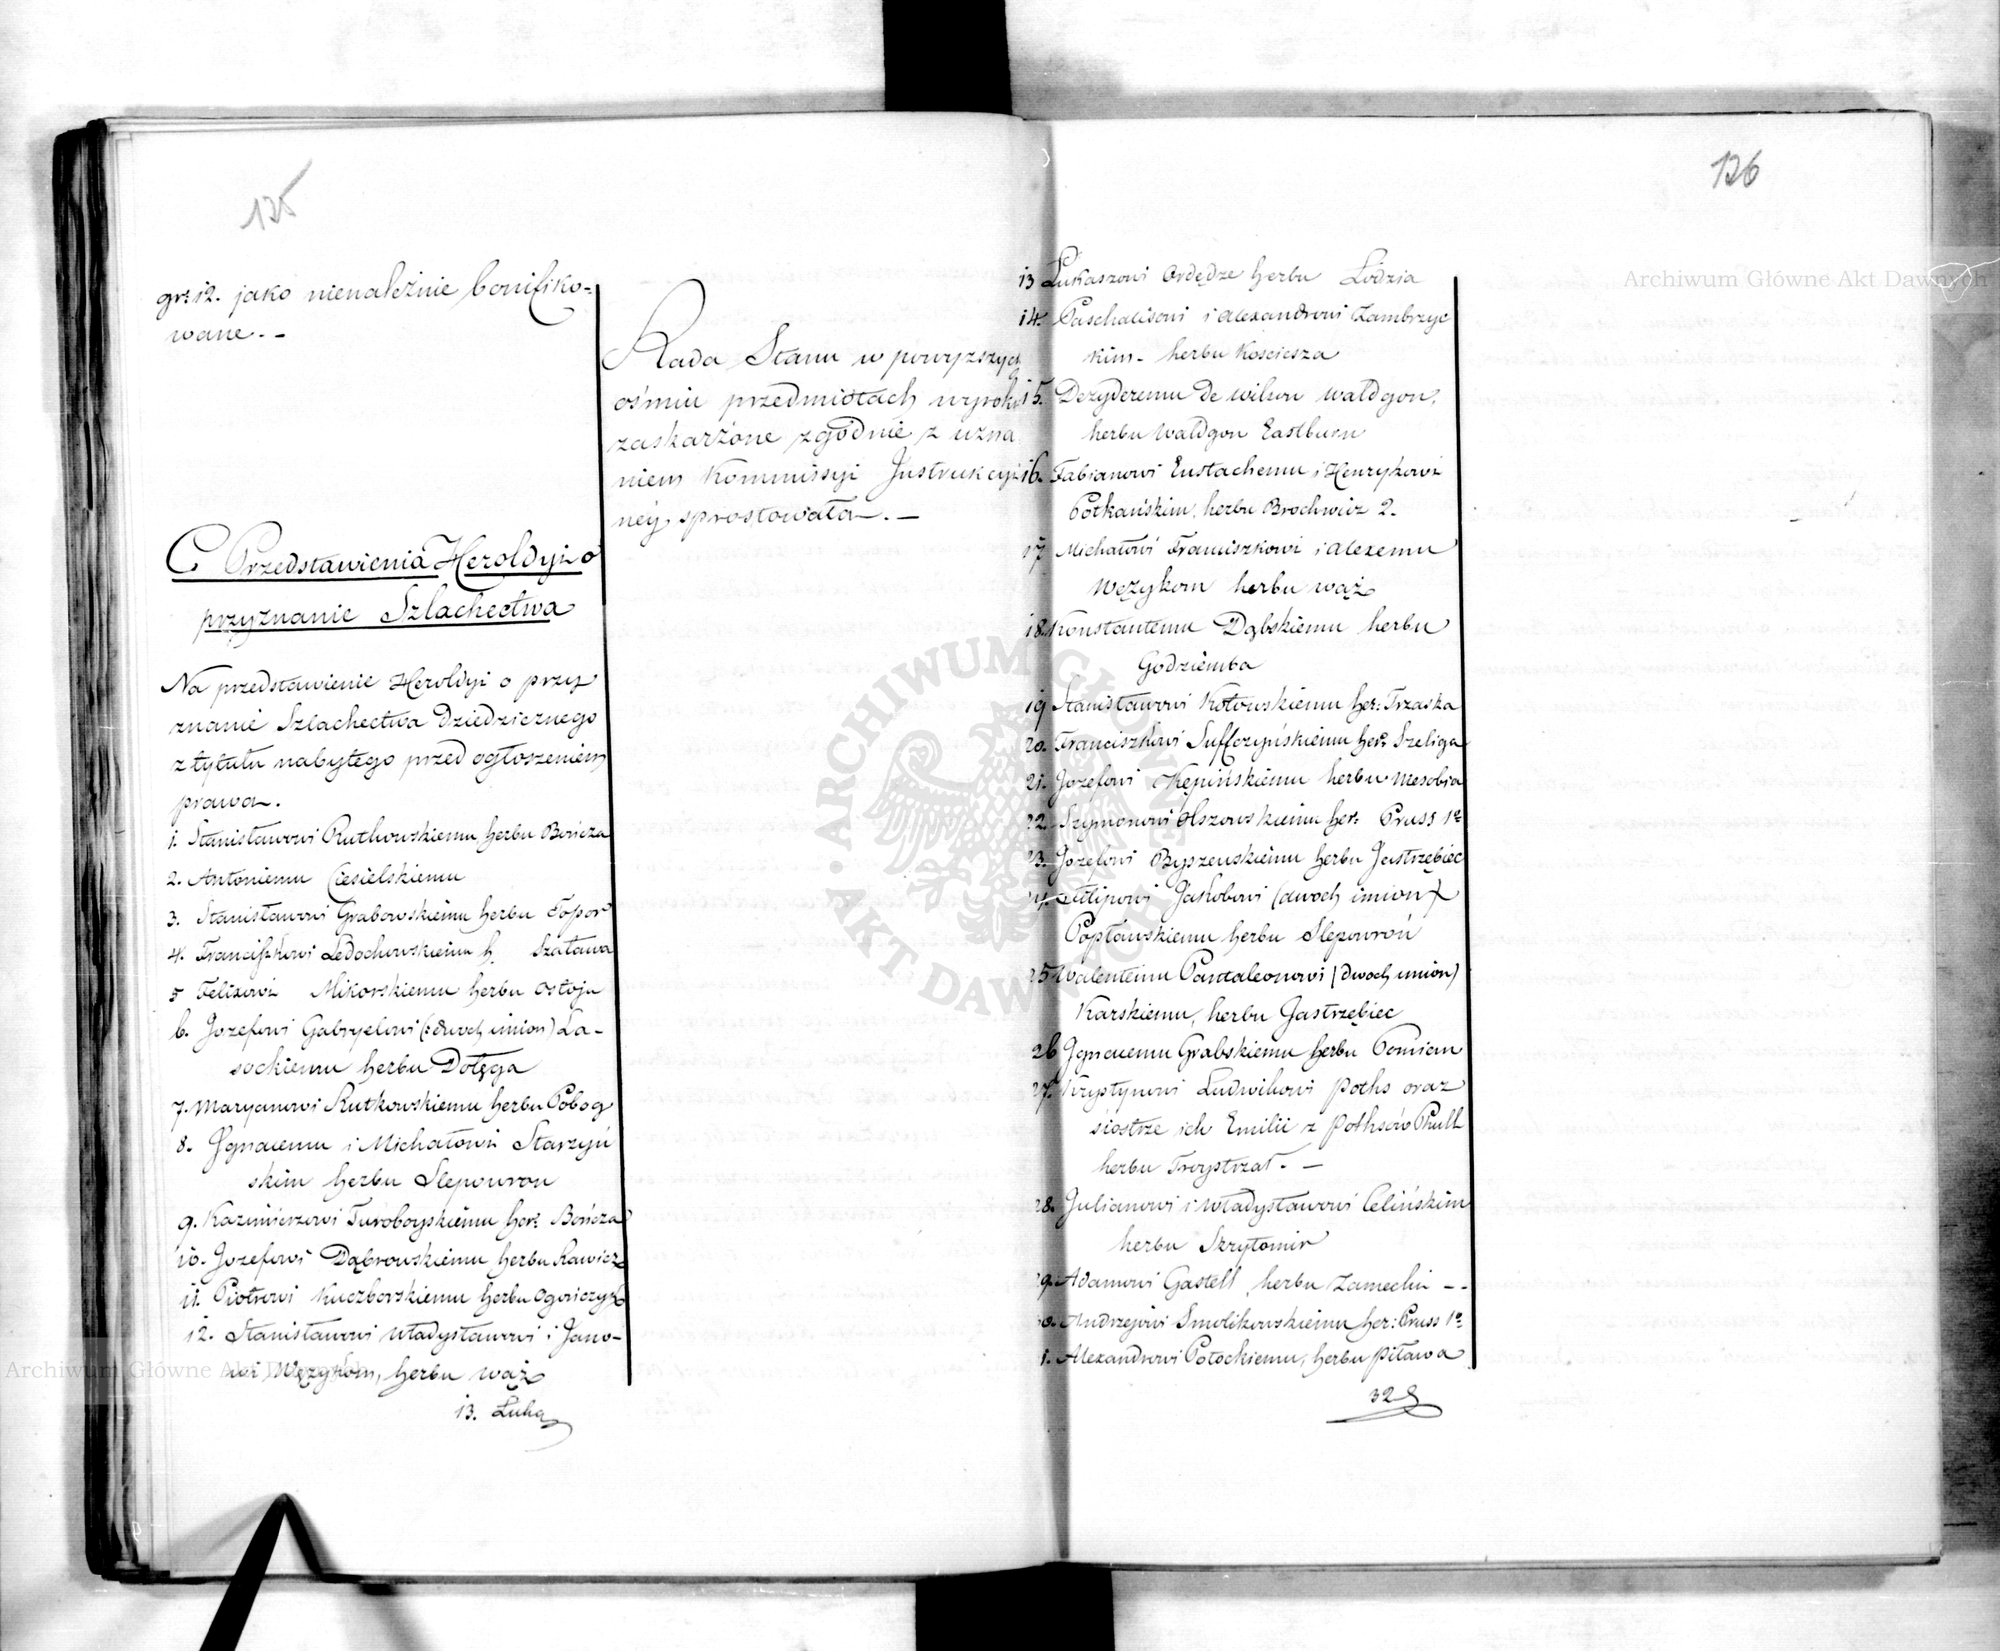 125
gr: 12. jako nienależnie bonifiko-
wane. -
C Przedstawienia Heroldyi o
przyznanie Szlachectwa
Na przedstawienie Heroldyi o przy
znanie Szlachectwa Dziedzicznego
z tytułu nabytego przed ogłoszeniem
prawa.
1. Stanisławowi Ruthowskiemu herbu Bończa
2. Antoniemu Ciesielskiemu
3. Stanisławowi Grabowskiemu herbu Topor
4. Franciszkowi Ledochowskiemu h. Szaława
5 Felixowi Mikorskiemu herbu Ostoja
6. Jozefowi Gabryelowi (: dwoch imion) La-
sockiemu herbu Dołęga
7. Maryanowi Rutkowskiemu herbu Pobog
8. Ignacemu i Michałowi Starzyń
skim herbu Slepowron
9. Kazimierzowi Turoboyskiemu her: Bończa
10. Jozefowi Dąbrowskiemu herbu Rawicz
11. Piotrowi Kuczborskiemu herbu Ogończyk
12. Stanisławowi Władysławowi i Jano-
wi Wężykom, herbu wąż
13. Łuka
Rada Stanu w powyzszych
ośmiu przedmiotach wyroki
zaskarżone zgodnie z uzna
niem Kommissyi Instrukcyi
néy sprostowała. -
126
13 Łukaszowi Ordędze herbu Łodzia
14. Paschalisowi i Alexandrowi Zambrzyc
kim - herbu Kosciesza
15. Dezyderemu De Wilson Waldgon,
herbu Waldgon Eastburn
16. Fabianowi Eustachemu i Henrykowi
Potkańskim, herbu Brochwicz 2.
17 Michałowi Franciszkowi i Alexemu
Wężykom herbu wąż
18. Konstantemu Dąbskiemu herbu
Godziemba
19 Stanisławowi Kołowskiemu her: Trzaska
20. Franciszkowi Suffczyńskiemu her: Szeliga
21. Jozefowi Kępińskiemu herbu Mesobia
22. Szymonowi Olszowskiemu her: Pruss 1º
23. Jozefowi Byszewskiemu herbu Jastrzębiec
24. Filipowi Jakobowi (dwoch imion)
Popławskiemu herbu Slepowron
25 Walentemu Pantaleonowi (dwoch imion)
Karskiemu, herbu Jastrzębiec
26 Ignacemu Grabskiemu herbu Pomian
27. Krystynowi Ludwikowi Poths oraz
siostrze ich Emilii z Pothsów Phull
herbu Trzystrzał. -
28. Julianowi i Władysławowi Celińskim
herbu Skrytomir
29. Adamowi Gastell, herbu Zamechu - -
30. Andrzejowi Smolikowskiemu her: Pruss 1º
1. Alexandrowi Potockiemu, herbu Pilawa
32
Archiwum Główne Akt Dawnych
Archiwum Główne Akt Dawnych
· ARCHIWUM GŁÓWNE · AKT DAWNYCH